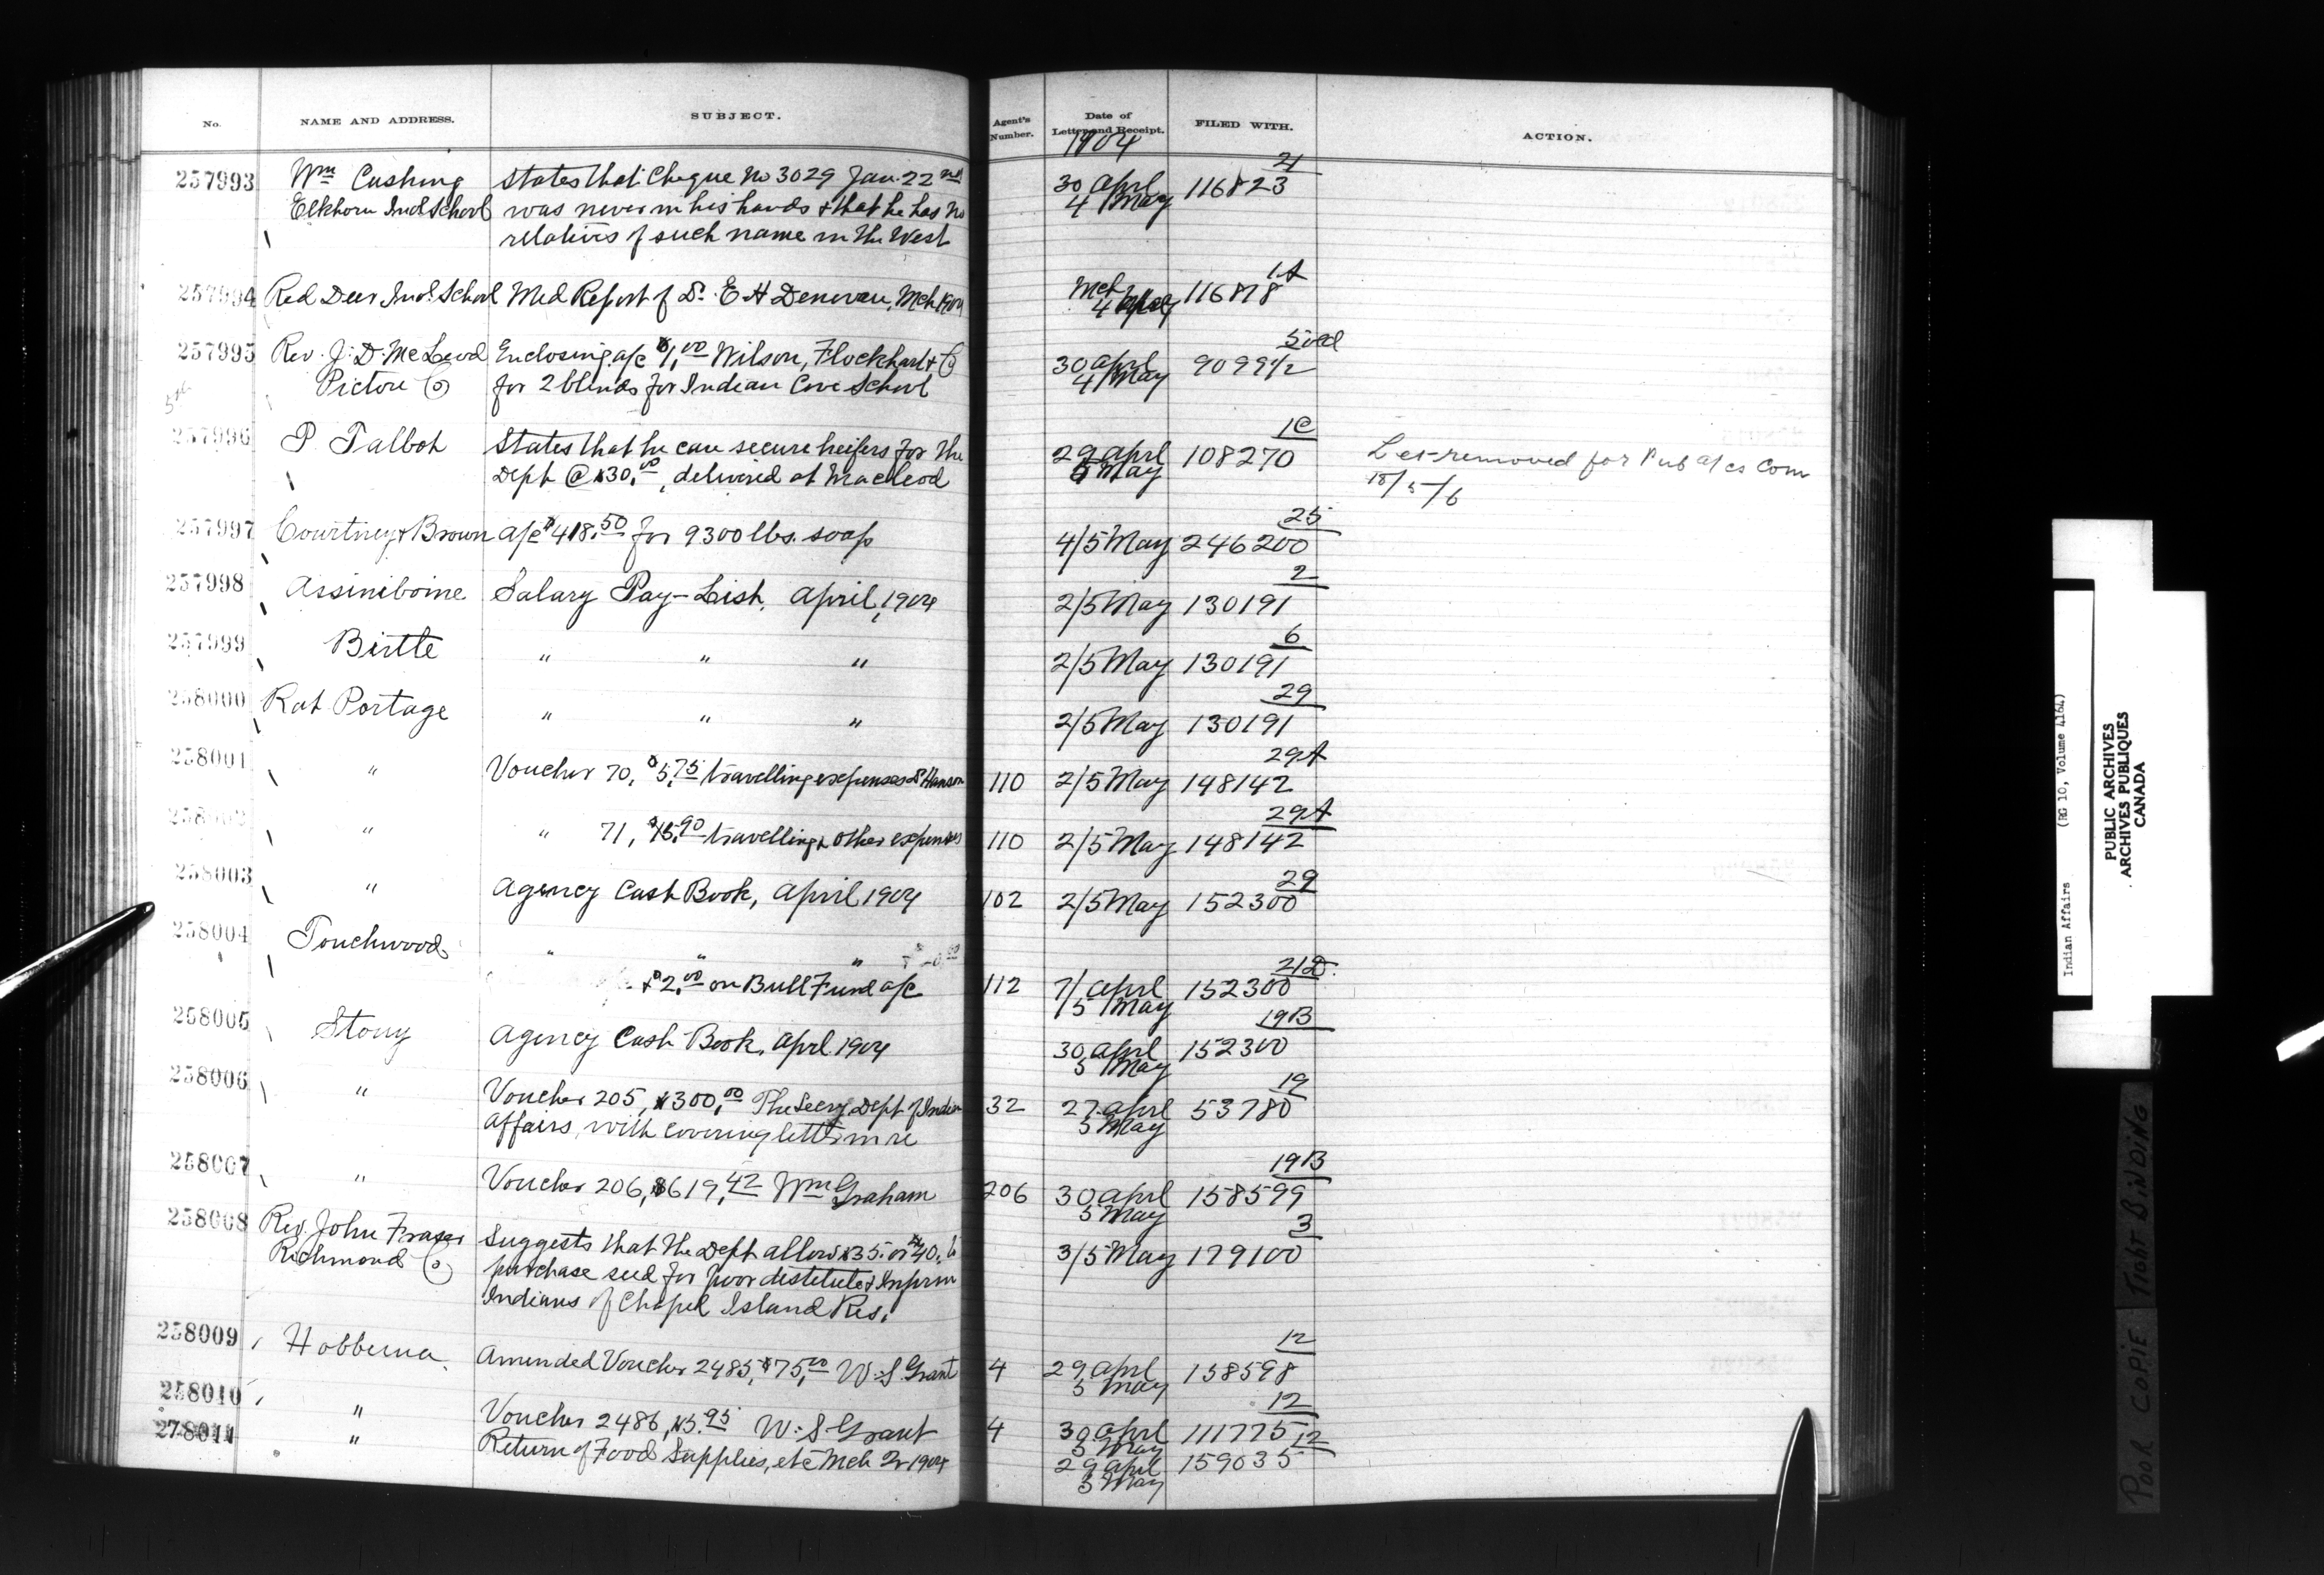 No. NAME AND ADDRESS. SUBJECT. Agent's Number. Date of Letter and Receipt. FILED WITH. ACTION.
1904
257993 Wm Cushing States that Cheque No 3029 Jan. 22nd 30 April 116823 21
Elkhorn Ind. School was never in his hands & that he has no 4 May
relatives of such name in the West
257994 Red Deer Ind. School Med Report of Dr. E H Denovan, Mch 1904 Mch 4 May 116818 1A
257995 Rev. J. D. McLeod Enclosing a/c $1.00 Wilson, Flockhart & Co 30 April 90994/2
Pictou Co for 2 blinds for Indian Cove School 4 May
257996 P. Talbot States that he can secure heifers for the 29 April 108270 1C Let removed for Pub a/cs Com
Dept @ $30.00, delivered at Macleod 5 May 18/5/6
257997 Courtney & Brown a/c $418.50 for 9300 lbs. soap 4/5 May 246200 25
257998 Assiniboine Salary Pay-List, April, 1904 2/5 May 130191 2
257999 Birtle " " " 2/5 May 130191 6
258000 Rat Portage " " " 2/5 May 130191 29
258001 " Voucher 70, $5.75 travelling expenses Dr Hanson 110 2/5 May 148142 29A
258002 " " 71, $15.90 travelling & other expenses 110 2/5 May 148142 29A
258003 " Agency Cash Book, April 1904 102 2/5 May 152300 29
258004 Touchwood " " "
& $2.00 on Bull Fund a/c 112 7/ April 152300 21D.
/5 May
258005 Stony Agency Cash Book, Apl. 1904 30 April 152300 19B
5 May
258006 " Voucher 205, $300.00 The Secry Dept of Indian 32 27 April 53780 19
Affairs, with covering letter in re 5 May
258007 " Voucher 206, $619.42 Wm Graham 206 30 April 158599 19B
5 May
258008 Rev. John Fraser Suggests that the Dept allow $35. or $40. to 3/5 May 179100 3
Richmond Co purchase seed for poor destitute & Infirm
Indians of Chapel Island Res.
258009 Hobbema Amended Voucher 2485, $75.00 W. S. Grant 4 29 April 158598 12
5 May
258010 " Voucher 2486, $5.95 W. S. Grant 4 30 April 111775 12
5 May
278011 " Return of Food Supplies, etc Mch Qr 1904 29 April 159035 12
5 May
Indian Affairs (RG 10, Volume 4164)
PUBLIC ARCHIVES
ARCHIVES PUBLIQUES
CANADA
POOR COPIE TIGHT BINDING